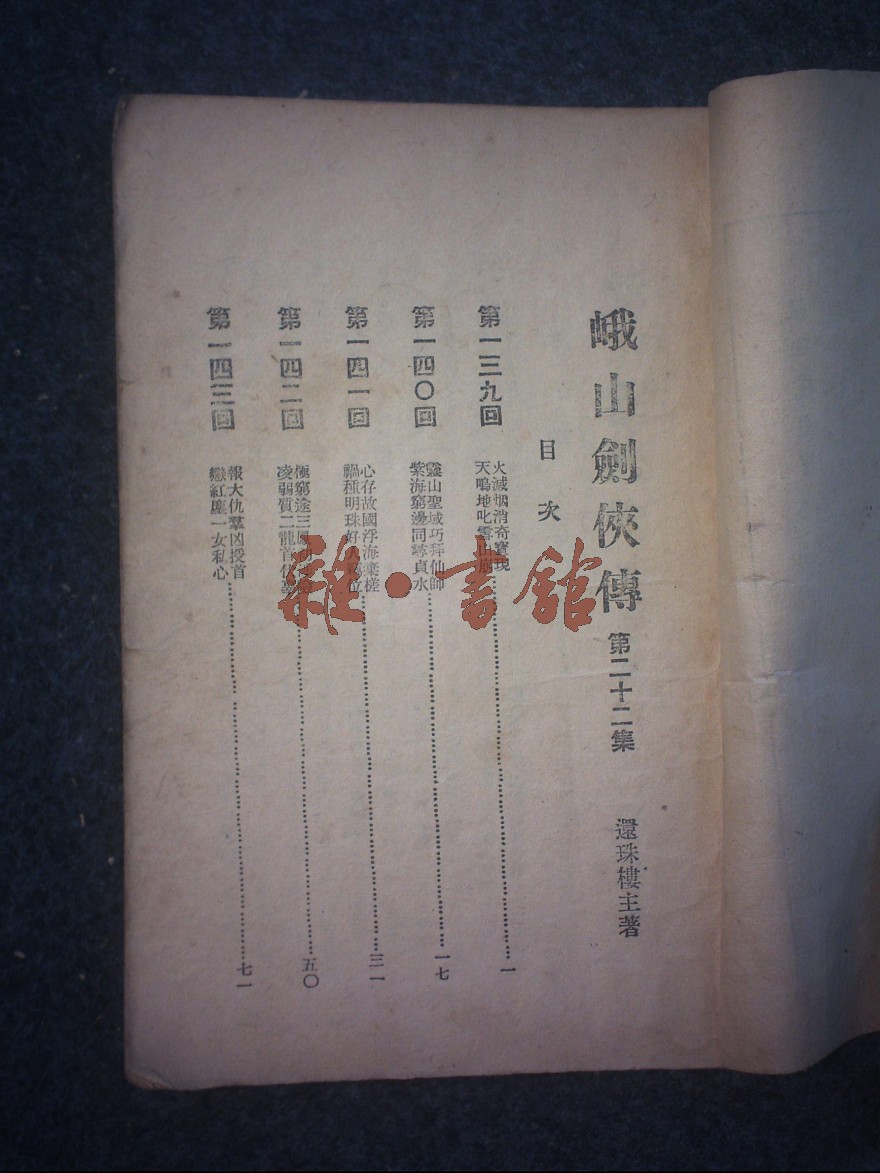 峨山劍俠傳 第二十二集 還珠樓主著
目次
第一三九回
火滅烟消奇寶現
天鳴地叱雪山崩
一
第一四〇回
靈山聖域巧拜仙師
紫海窮邊同尋貞水
一七
第一四一回
心存故國浮海乘槎
禍種明珠好人
三一
第一四二回
極窮途三鳳
凌弱質二龍首
五〇
第一四三回
報大仇羣凶授首
戀紅塵一女私心
七一
雜·書館